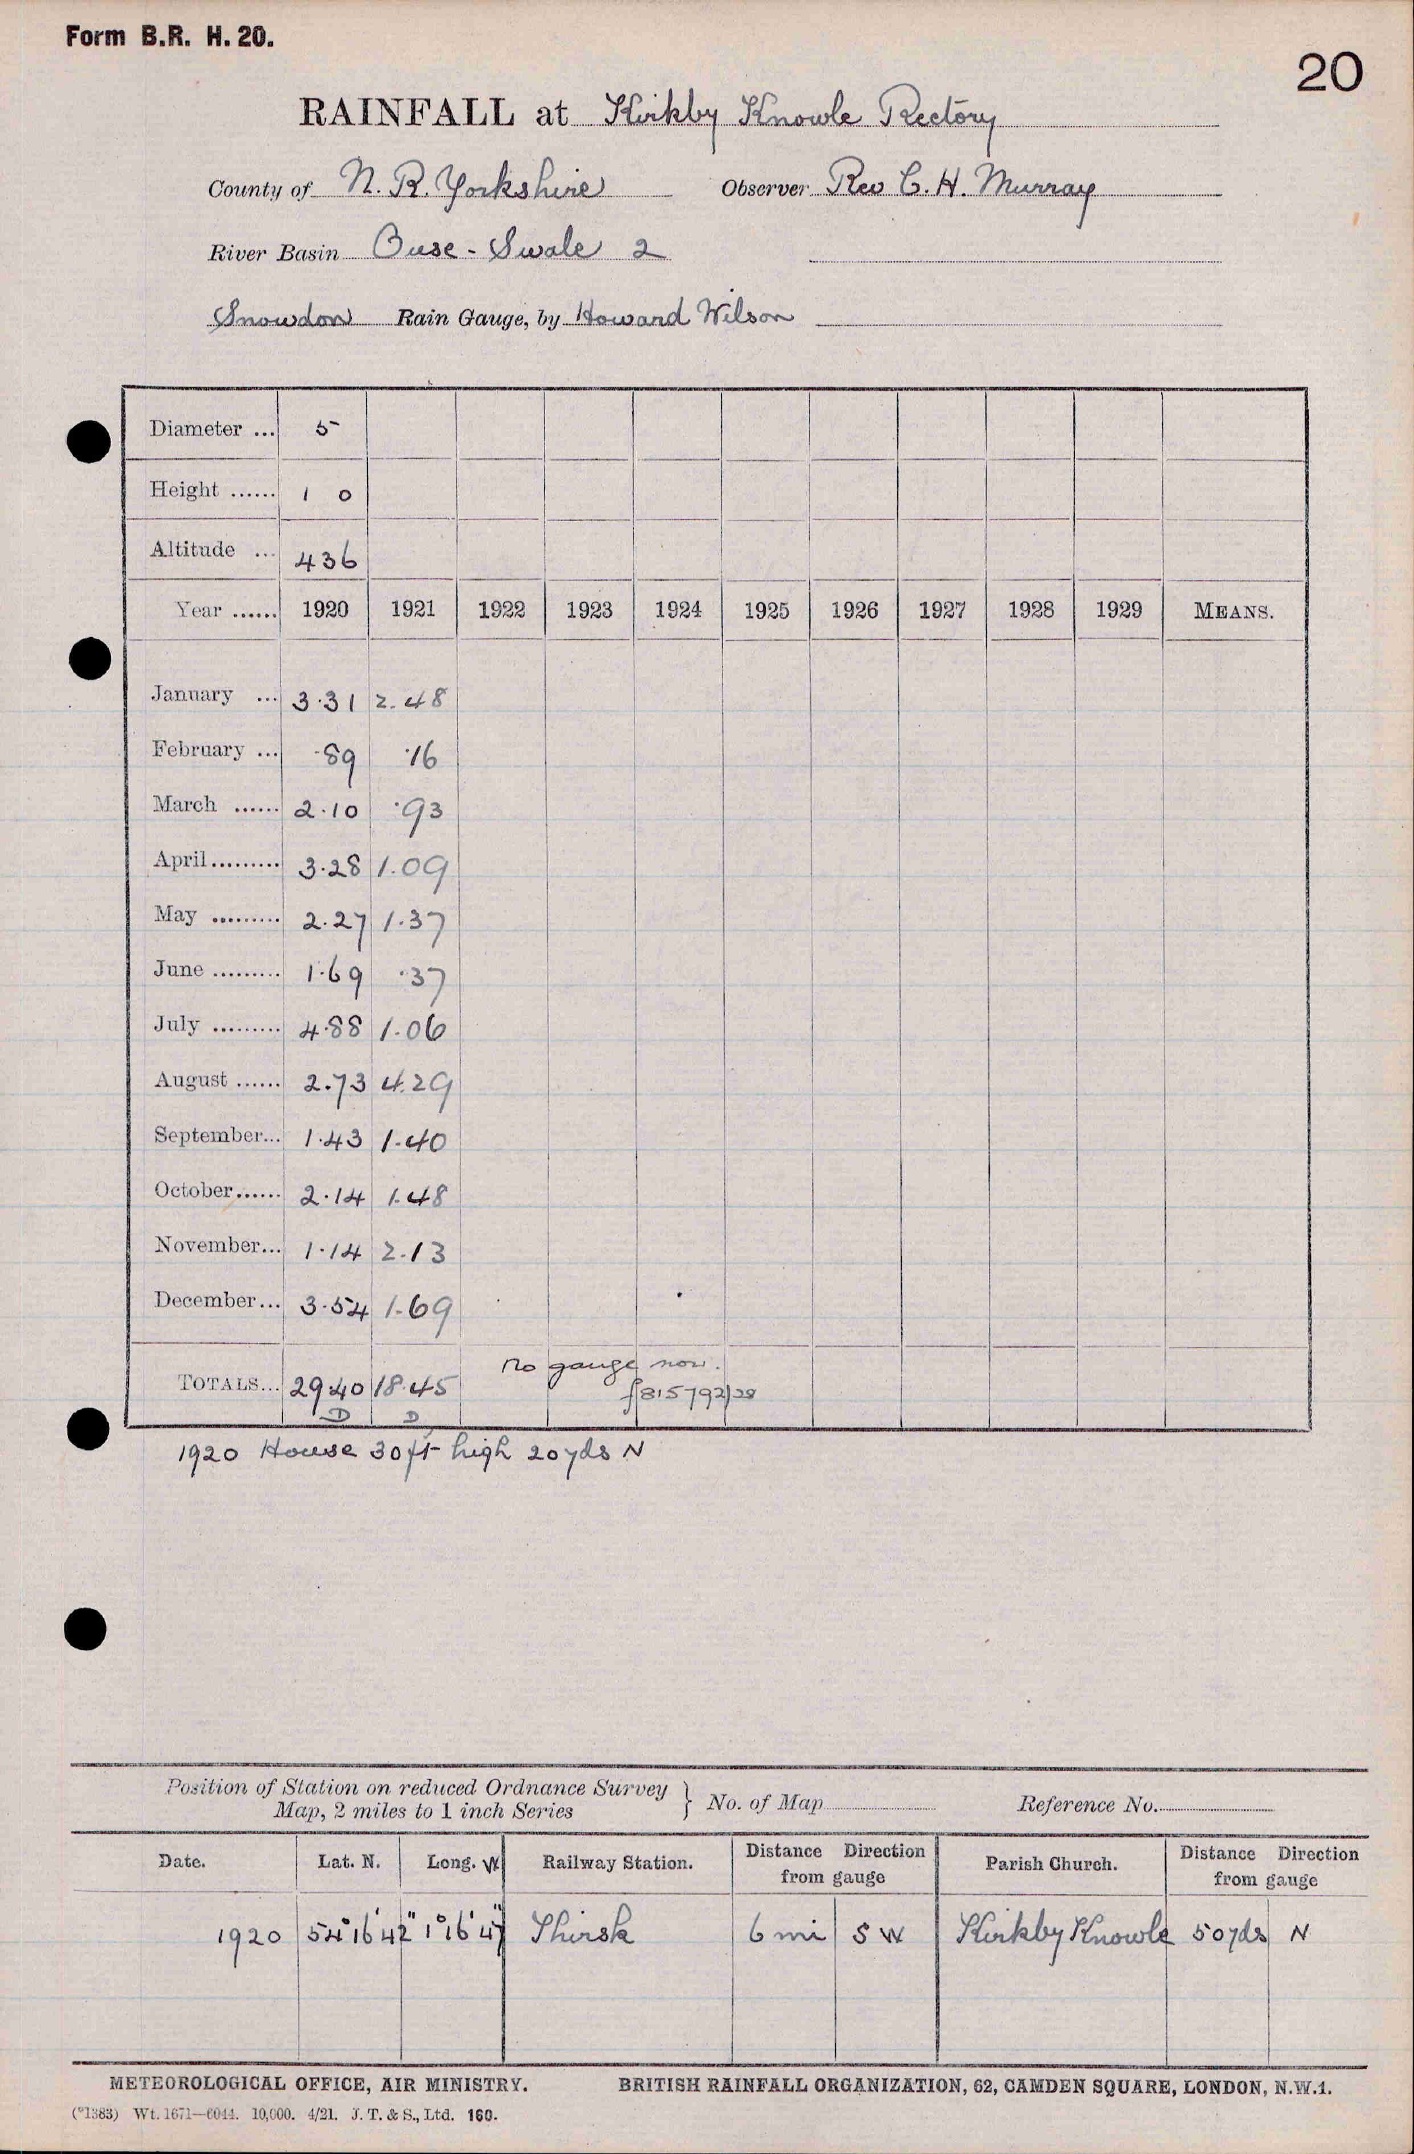 Form B.R. H. 20.
20
RAINFALL at Kirkby Knowle Rectory
County of N. R. Yorkshire Observer Rev C. H. Murray
River Basin Ouse - Swale 2
Snowdon Rain Gauge, by Howard Wilson
Diameter ... 5
Height ...... 1 0
Altitude ... 436
Year ...... 1920 1921 1922 1923 1924 1925 1926 1927 1928 1929 MEANS.
January ... 3.31 2.48
February ... .89 .16
March ...... 2.10 .93
April......... 3.28 1.09
May ......... 2.27 1.37
June ......... 1.69 .37
July ......... 4.88 1.06
August ...... 2.73 4.29
September... 1.43 1.40
October...... 2.14 1.48
November... 1.14 2.13
December... 3.54 1.69
no gauge now.
TOTALS... 29.40 18.45
D D
1920 House 30ft high 20yds N
Position of Station on reduced Ordnance Survey Map, 2 miles to 1 inch Series } No. of Map Reference No.
Date. Lat. N. Long. W Railway Station. Distance Direction from gauge Parish Church. Distance Direction from gauge
1920 54°16'42" 1°16'47" Thirsk 6 mi S W Kirkby Knowle 50yds N
METEOROLOGICAL OFFICE, AIR MINISTRY. BRITISH RAINFALL ORGANIZATION, 62, CAMDEN SQUARE, LONDON, N.W.1.
(*1383) Wt. 1671—6044. 10,000. 4/21. J. T. & S., Ltd. 160.